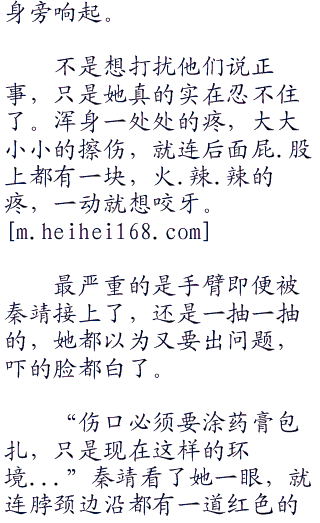 身旁响起。
不是想打扰他们说正
事，只是她真的实在忍不住
了。浑身一处处的疼，大大
小小的擦伤，就连后面屁.股
上都有一块，火.辣.辣的
疼，一动就想咬牙。
[m.heihei168.com]
最严重的是手臂即便被
秦靖接上了，还是一抽一抽
的，她都以为又要出问题，
吓的脸都白了。
“伤口必须要涂药膏包
扎，只是现在这样的环
境...”秦靖看了她一眼，就
连脖颈边沿都有一道红色的